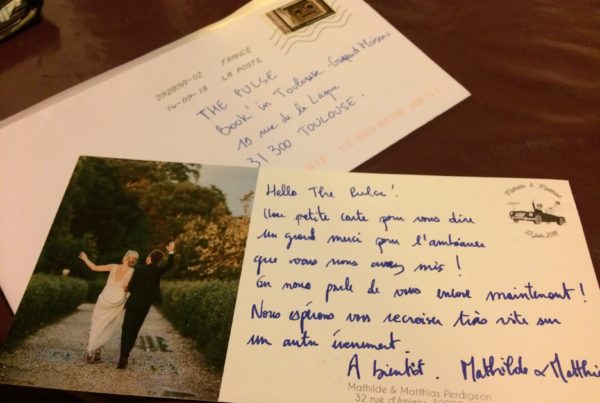 FRANCE
LA POSTE
39289A-02
14-09-18
THE PULSE
Book'in Toulouse
10 rue de la
31 300 TOULOUSE.
Mathilde & Matthias
23 juin 2018
Hello The Pulse!
Une petite carte pour vous dire
un grand merci pour l'ambiance
que vous nous avez mis !
On nous parle de vous encore maintenant !
Nous espérons vous recroiser très vite sur
un autre évènement.
A bientôt. Mathilde & Matthi
Mathilde & Matthias Perdigeon
32 rue d'Amiens